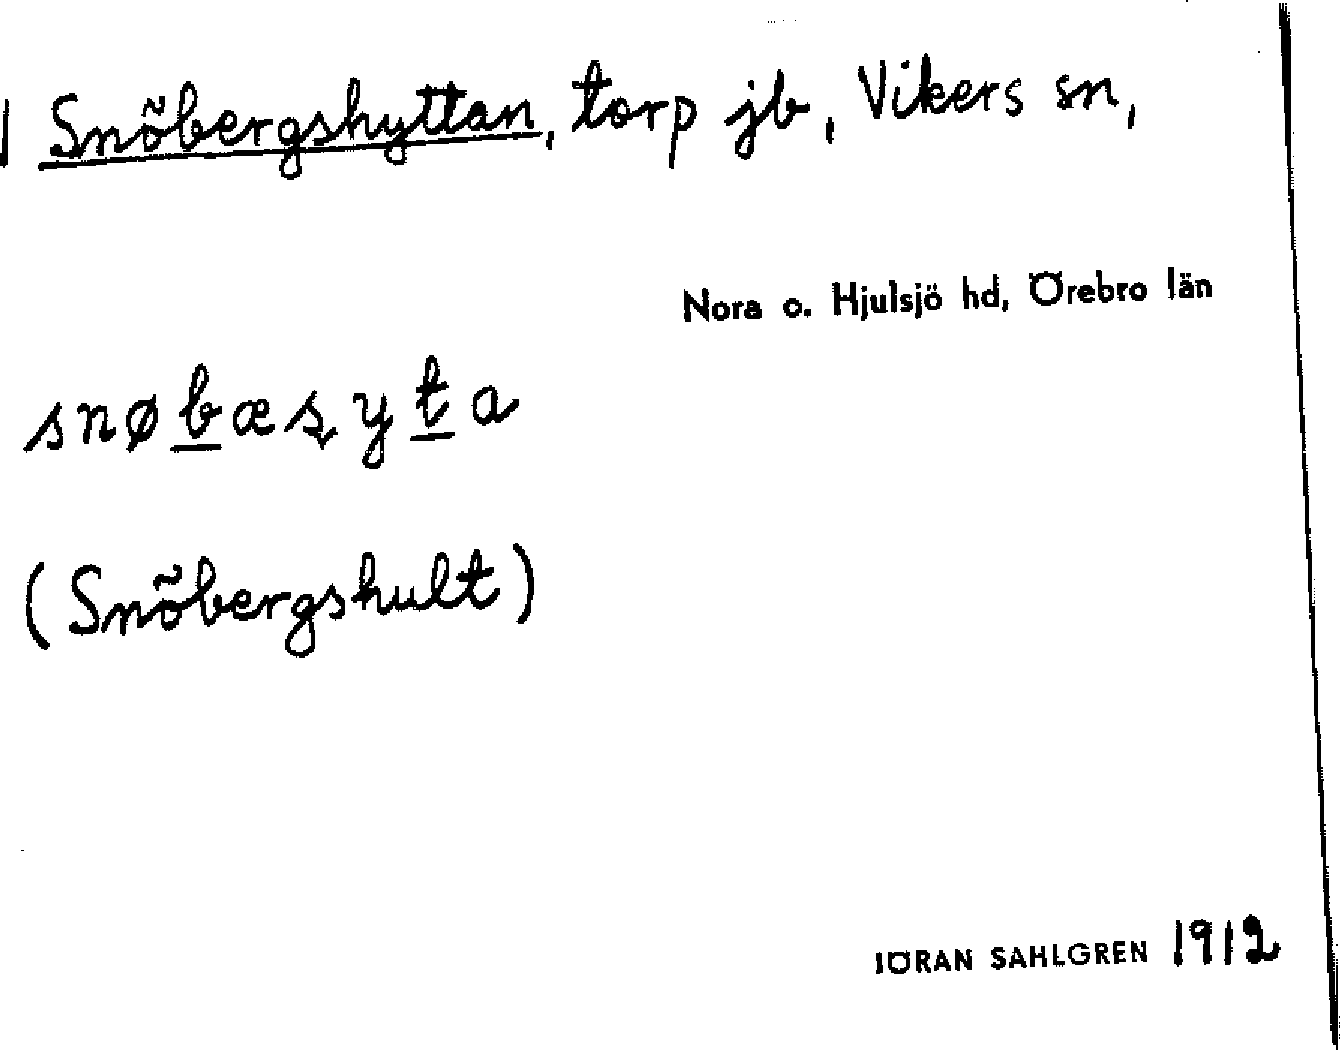 Snöbergshyttan, torp jb, Vikers sn,
Nora o. Hjulsjö hd, Örebro län
snøbæʂyta
(Snöbergshult)
JÖRAN SAHLGREN 1912